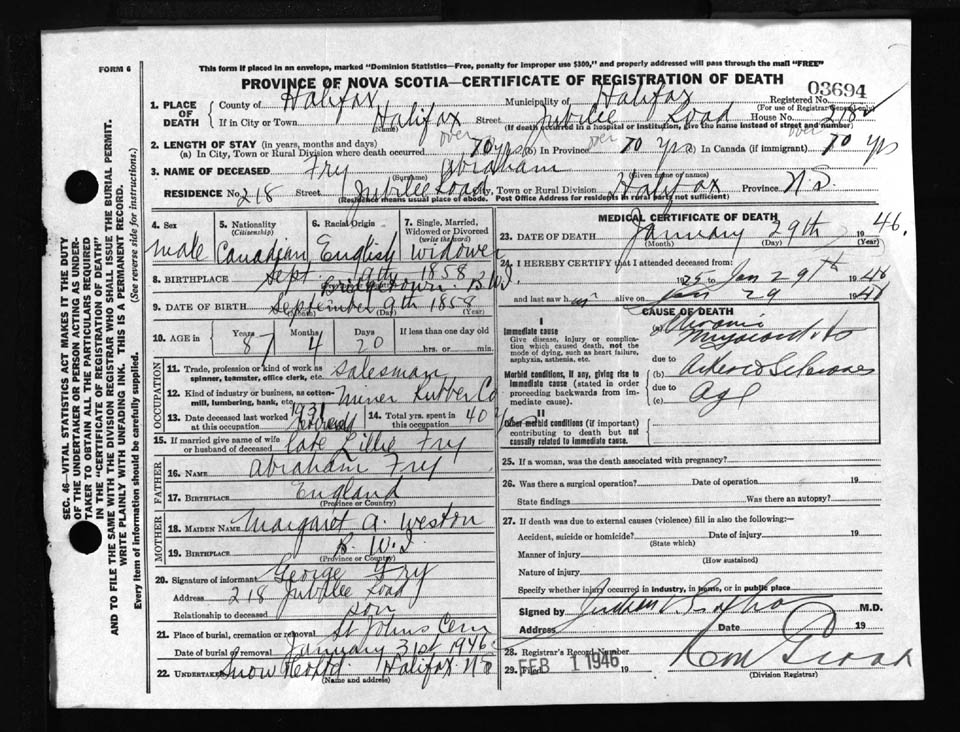 This form if placed in an envelope, marked "Dominion Statistics—Free, penalty for improper use $300," and properly addressed will pass through the mail "FREE"
FORM 6
PROVINCE OF NOVA SCOTIA—CERTIFICATE OF REGISTRATION OF DEATH
03694
1. PLACE OF DEATH County of Halifax Municipality of Halifax Registered No.
(For use of Registrar General only)
If in City or Town Halifax Street Jubilee Road House No. 218
(Name) (If death occurred in a hospital or institution, give the name instead of street and number)
2. LENGTH OF STAY (in years, months and days)
(a) In City, Town or Rural Division where death occurred over 70 yrs (b) In Province over 70 yrs (c) In Canada (if immigrant) over 70 yrs
3. NAME OF DECEASED Fry Abraham
(Surname) (Given name or names)
RESIDENCE No. 218 Street Jubilee Road City, Town or Rural Division Halifax Province N.S.
(Residence means usual place of abode. Post Office Address for residents in rural parts not sufficient)
4. Sex male
5. Nationality (Citizenship) Canadian
6. Racial Origin English
7. Single, Married, Widowed or Divorced (write the word) Widower
Sept. 9th, 1858
8. BIRTHPLACE Bridgetown B.W.I.
9. DATE OF BIRTH September 9th 1858
(Month) (Day) (Year)
10. AGE in Years 87 Months 4 Days 20 If less than one day old hrs. or min.
OCCUPATION
11. Trade, profession or kind of work as spinner, teamster, office clerk, etc. salesman
12. Kind of industry or business, as cotton-mill, lumbering, bank, etc. Miner Rubber Co
13. Date deceased last worked at this occupation 1931 retired
14. Total yrs. spent in this occupation 40
15. If married give name of wife or husband of deceased late Lillie Fry
FATHER
16. NAME Abraham Fry
17. BIRTHPLACE England
(Province or Country)
MOTHER
18. MAIDEN NAME Margaret A. Weston
19. BIRTHPLACE B.W.I.
(Province or Country)
20. Signature of informant George Fry
Address 218 Jubilee Road
Relationship to deceased son
21. Place of burial, cremation or removal St Johns Cem
Date of burial or removal January 31st 1946
22. UNDERTAKER Snow & Co Ltd. Halifax N.S.
(Name and address)
MEDICAL CERTIFICATE OF DEATH
23. DATE OF DEATH January 29th 1946.
(Month) (Day) (Year)
24. I HEREBY CERTIFY that I attended deceased from:
Jan 29th 1946
and last saw him alive on Jan 29 1946
CAUSE OF DEATH
I
Immediate cause
Give disease, injury or complication which caused death, not the mode of dying, such as heart failure, asphyxia, asthenia, etc.
(a) Chronic Myocarditis
due to
Morbid conditions, if any, giving rise to immediate cause (stated in order proceeding backwards from immediate cause).
(b) Arterio Sclerosis
due to
(c) Age
II
Other morbid conditions (if important) contributing to death but not causally related to immediate cause.
25. If a woman, was the death associated with pregnancy?
26. Was there a surgical operation? Date of operation 19
State findings Was there an autopsy?
27. If death was due to external causes (violence) fill in also the following:—
Accident, suicide or homicide? Date of injury 19
(State which)
Manner of injury
(How sustained)
Nature of injury
Specify whether injury occurred in industry, in home, or in public place
Signed by M.D.
Address Date 19
28. Registrar's Record Number
29. Filed FEB 1 1946 19
(Division Registrar)
SEC. 46—VITAL STATISTICS ACT MAKES IT THE DUTY
OF THE UNDERTAKER OR PERSON ACTING AS UNDER-
TAKER TO OBTAIN ALL THE PARTICULARS REQUIRED
IN THE "CERTIFICATE OF REGISTRATION OF DEATH"
AND TO FILE THE SAME WITH THE DIVISION REGISTRAR WHO SHALL ISSUE THE BURIAL PERMIT.
WRITE PLAINLY WITH UNFADING INK. THIS IS A PERMANENT RECORD.
Every item of information should be carefully supplied. (See reverse side for instructions.)